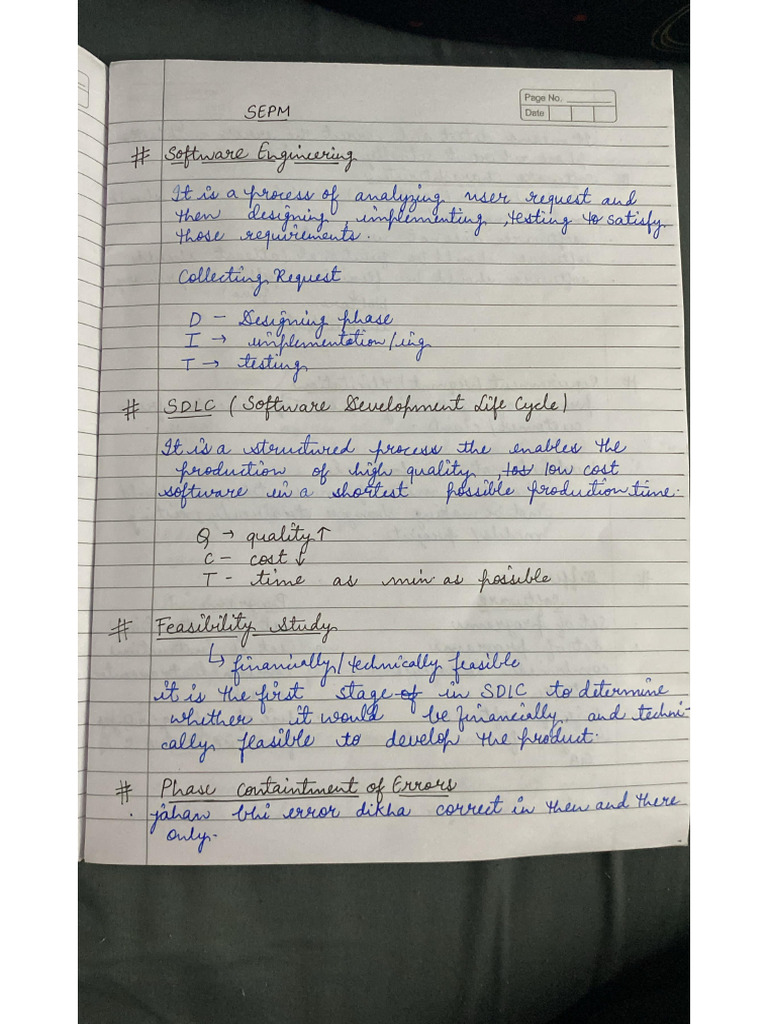 Page No.
Date
SEPM
# Software Engineering
It is a process of analyzing user request and
then designing, implementing, testing to satisfy
those requirements.
Collecting Request
D - Designing phase
I → implementation/ing
T → testing
# SDLC (Software Development Life Cycle)
It is a structured process the enables the
production of high quality, low cost
software in a shortest possible production time.
Q → quality ↑
C - cost ↓
T - time as min as possible
# Feasibility Study
↳ financially/technically feasible
it is the first stage of in SDLC to determine
whether it would be financially and techni-
cally feasible to develop the product.
# Phase Containtment of Errors
. jahan bhi error dikha correct in then and there
only.